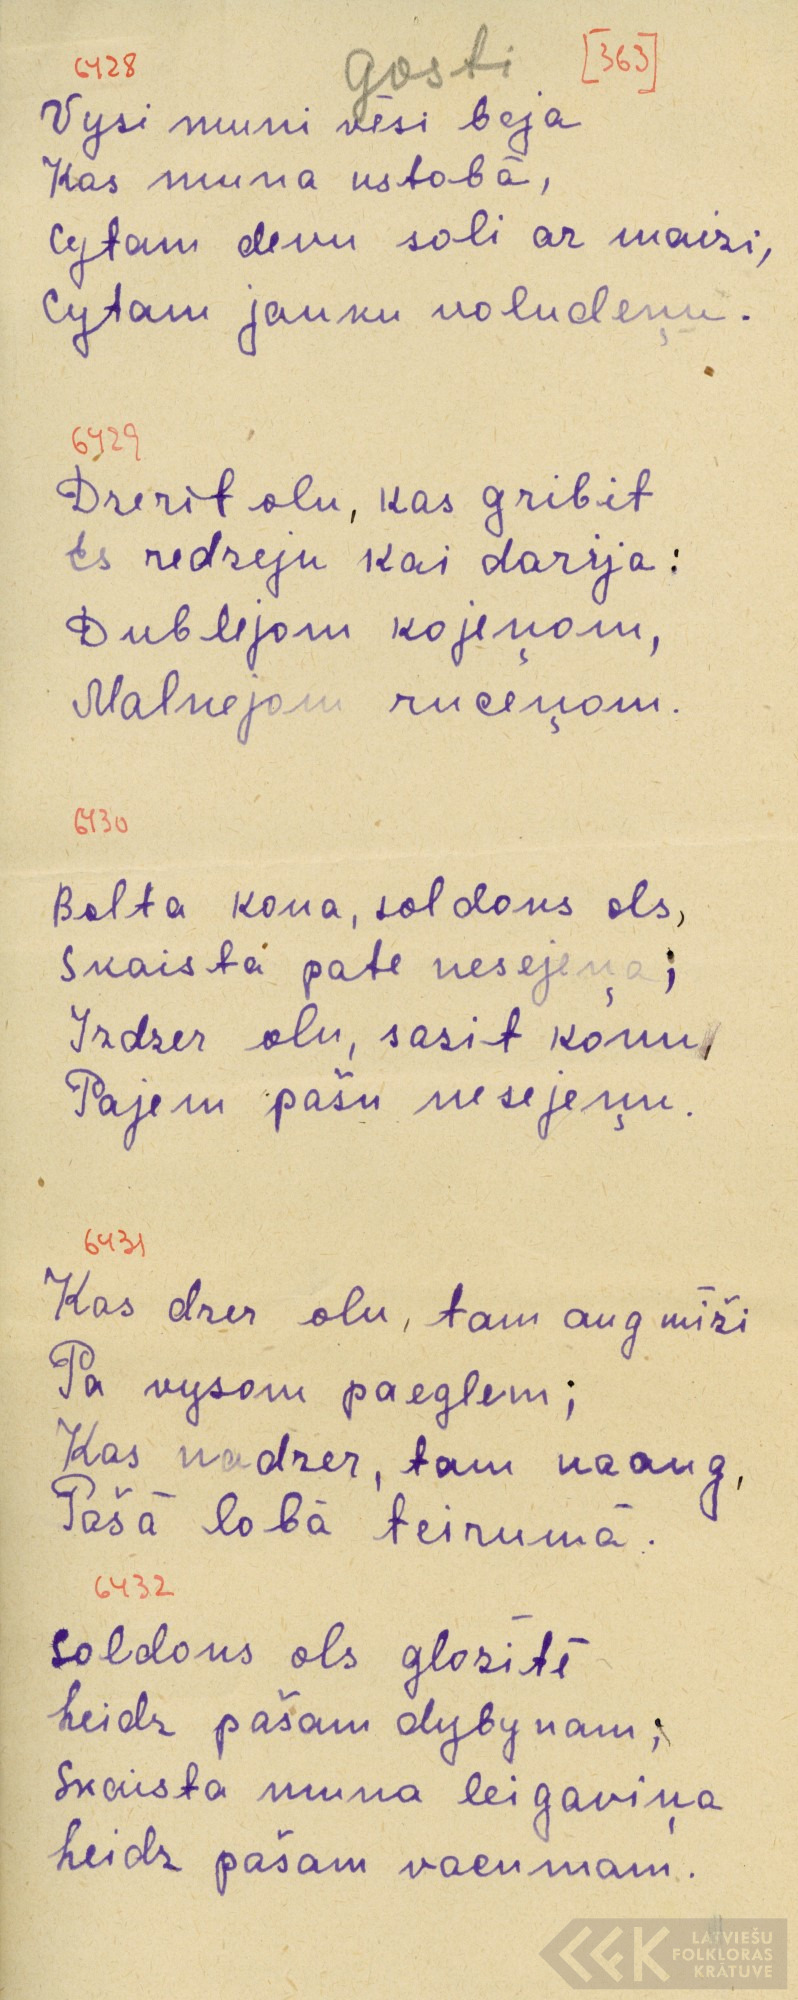 6428 gosti [363]
Vysi muni vēsi beja
Kas muna ustobā,
Cytam devu soli ar maizi,
Cytam jauku voludeņu.
6429
Dzerit olu, kas gribit
Es redzeju kai darija:
Dublejom kojeņom,
Malnejom ruceņom.
6430
Bolta kona, soldons ols,
Skaista pate nesejeņa;
Izdzer olu, sasit konu,
Pajem pašu nesejeņu.
6431
Kas dzer olu, tam aug mīži
Pa vysom paeglem;
Kas nadzer, tam naaug,
Pašā lobā teirumā.
6432
Soldons ols glozītē
heidz pašam dybynam;
Skaista muna leigaviņa
heidz pašam vacumam.
LATVIEŠU
FOLKLORAS
KRĀTUVE